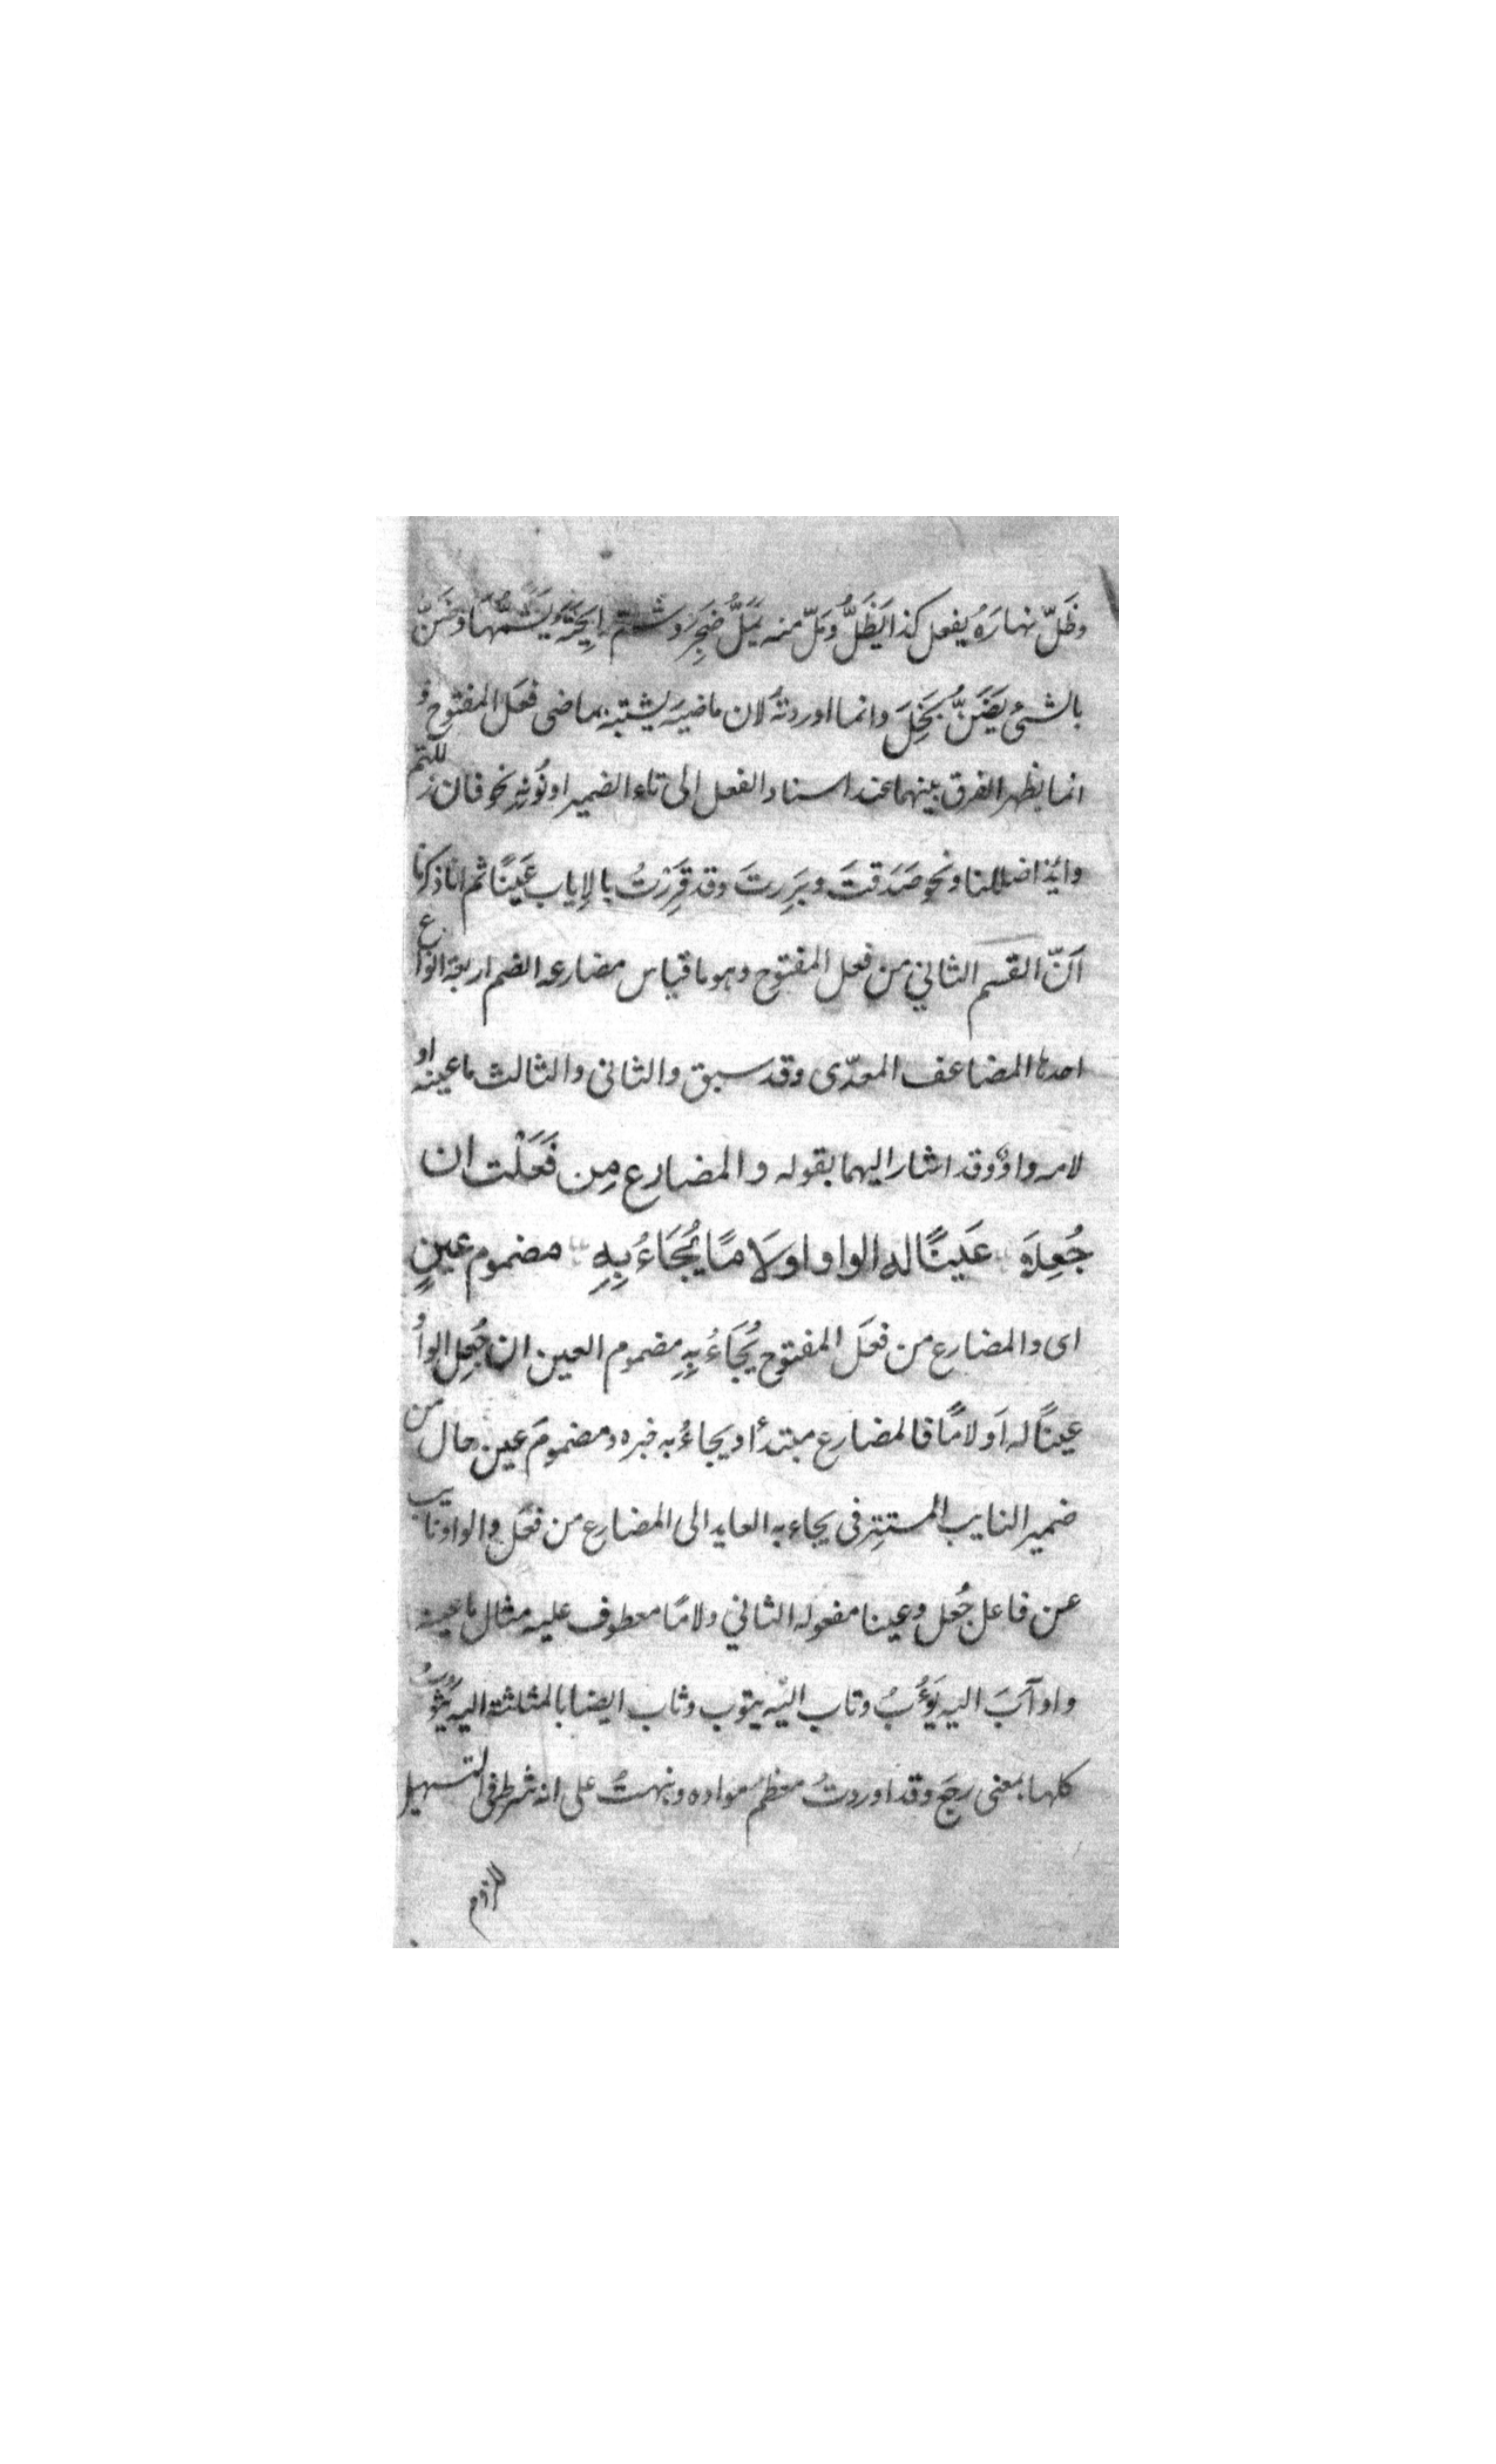 وظَلّ نهارَهُ يفعل كذا يَظَلُّ وَمَلّ منه يَمَلُّ ضَجِرَ وشمّ رايحَةً يَشَمُّهَا وضَنّ
بالشئ يَضَنُّ بَخِلَ وانما اوردتهُ لان ماضيَه يشتبه بماضى فعَل المفتوح و
انما يظهر الفرق بينهما عند اسناد الفعل الى تاء الضمير او نُونِه نحو فان زللتم
وائذا ضللنا ونحو صَدَقتَ وبَرِرتَ وقد قَرِرْتُ بالاِياب عَينًا ثم انا ذكرنا
اَنّ القسم الثاني من فعل المفتوح وهو ما قياس مضارعه الضم اربعة انواع
احدها المضاعف المعدّى وقد سبق والثانى والثالث ما عينه او
لامه واوٌ وقد اشار اليهما بقوله والمضارع مِن فَعَلْت ان
جُعِلَا عَينًا له الواو اولَامًا يُجَاءُ بِهِ مضموم عينٍ
اى والمضارع من فعَل المفتوح يُجَاءُ بِهِ مضموم العين ان جُعِل الواو
عينًا له اَو لامًا فالمضارع مبتدأ ويجاءُ به خبره ومضمومَ عين حال من
ضمير النايب المستتِر فى يجاء به العايد الى المضارع من فعَل والواو نايب
عن فاعل جُعل وعينا مفعوله الثاني ولامًا معطوف عليه مثال ما عينه
واو آبَ اليه يَؤُبُ وتاب اليْه يتوب وثاب ايضا بالمثلثة اليه يَثُوبُ
كلها بمعنى رجَع وقد اوردتُ معظم مواده ونبهتُ على انه شرط فى التسهيل
للزوم